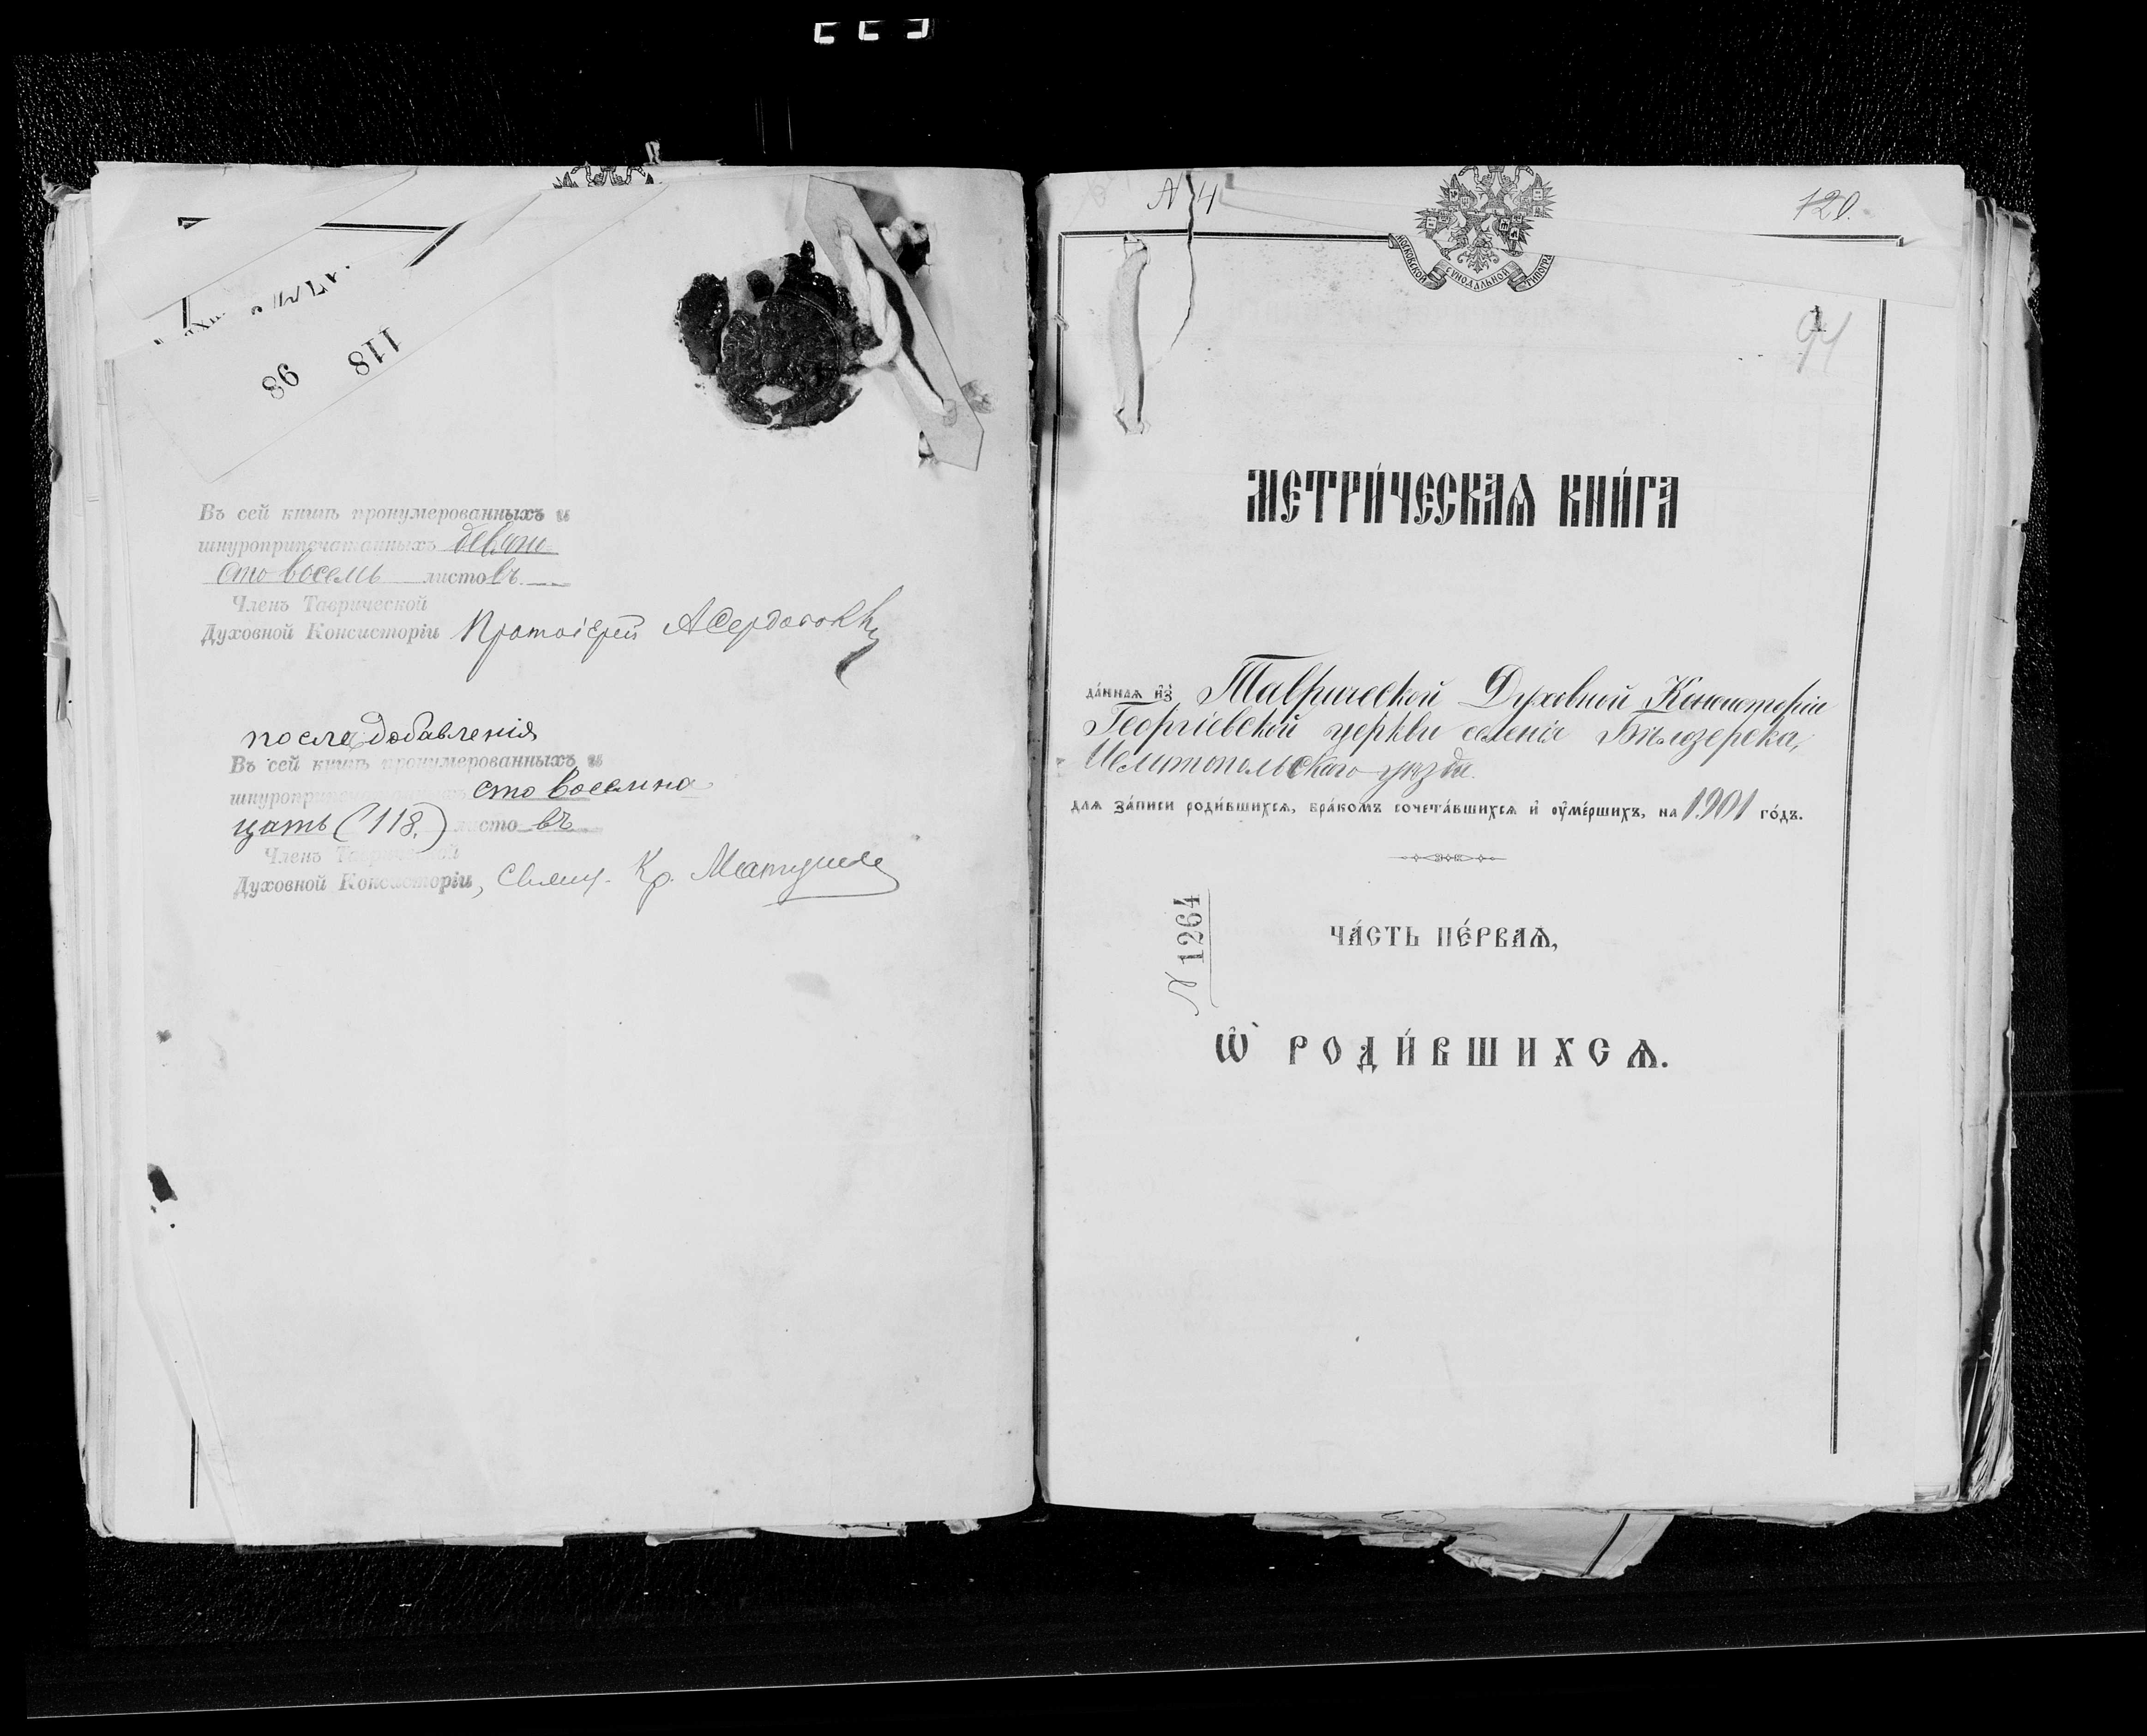 118
98
Въ сей книгѣ пронумерованныхъ и
шнуроприпечатанныхъ девяно-
сто восемь листовъ
Членъ Таврической
Духовной Консисторіи Протоіерей
после добавленія
Въ сей книгѣ пронумерованныхъ и
шнуроприпечатанныхъ сто восемна
цать (118.) листовъ
Членъ Таврической
Духовной Консисторіи, Свящ. Кр.
N 4
120.
МОСКОВСКОЙ СѴНОДАЛЬНОЙ ТИПОГРА
1
94
МЕТРИ́ЧЕСКАѦ КНИ́ГА
да́ннаѧ и҆з̾ Таврической Духовной Консисторіи
Георгіевской церкви селенія Бѣлозерска,
Мелитопольскаго уѣзда.
длѧ за́писи роди́вшихсѧ, бра́комъ сочета́вшихсѧ и҆ оу҆ме́ршихъ, на 1901 го́дъ.
N 1264
ЧА́СТЬ ПЕ́РВАѦ,
Ѽ РОДИ́ВШИХСѦ.